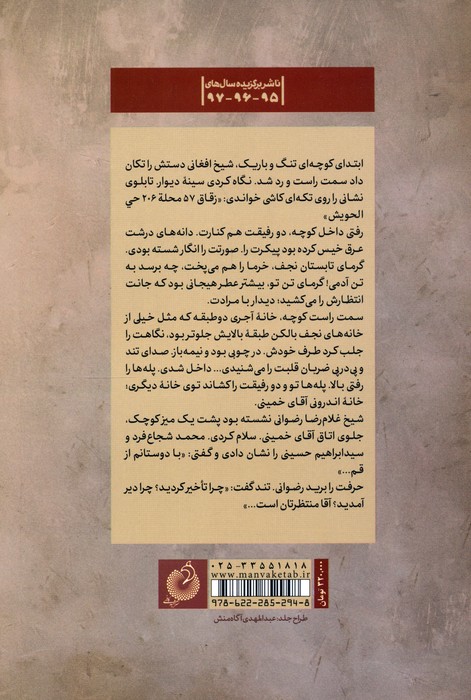 ناشر برگزیده سال‌های
۹۵-۹۶-۹۷
ابتدای کوچه‌ای تنگ و باریک، شیخ افغانی دستش را تکان
داد سمت راست و رد شد. نگاه کردی سینهٔ دیوار. تابلوی
نشانی را روی تکه‌ای کاشی خواندی: «زقاق ۵۷ محلة ۲۰۶ حي
الحویش»
رفتی داخل کوچه، دو رفیقت هم کنارت. دانه‌های درشت
عرق خیس کرده بود پیکرت را. صورتت را انگار شسته بودی،
گرمای تابستان نجف، خرما را هم می‌پخت، چه برسد به
تن آدمی! گرمای تن تو، بیشتر عطر هیجانی بود که جانت
انتظارش را می‌کشید؛ دیدار با مرادت.
سمت راست کوچه، خانهٔ آجری دوطبقه که مثل خیلی از
خانه‌های نجف بالکن طبقهٔ بالایش جلوتر بود، نگاهت را
جلب کرد طرف خودش. در چوبی بود و نیمه‌باز. صدای تند
و پی‌درپی ضربان قلبت را می‌شنیدی... داخل شدی. پله‌ها را
رفتی بالا. پله‌ها تو و دو رفیقت را کشاند توی خانهٔ دیگری؛
خانهٔ اندرونی آقای خمینی.
شیخ غلام‌رضا رضوانی نشسته بود پشت یک میز کوچک،
جلوی اتاق آقای خمینی. سلام کردی. محمد شجاع‌فرد و
سیدابراهیم حسینی را نشان دادی و گفتی: «با دوستانم از
قم...»
حرفت را برید رضوانی. تند گفت: «چرا تأخیر کردید؟ چرا دیر
آمدید؟ آقا منتظرتان است...»
۰۲۵-۳۳۵۵۱۸۱۸
www.manvaketab.ir
978-622-285-294-8
۳۲۰,۰۰۰ تومان
طراح جلد: عبدالمهدی آگاه‌منش